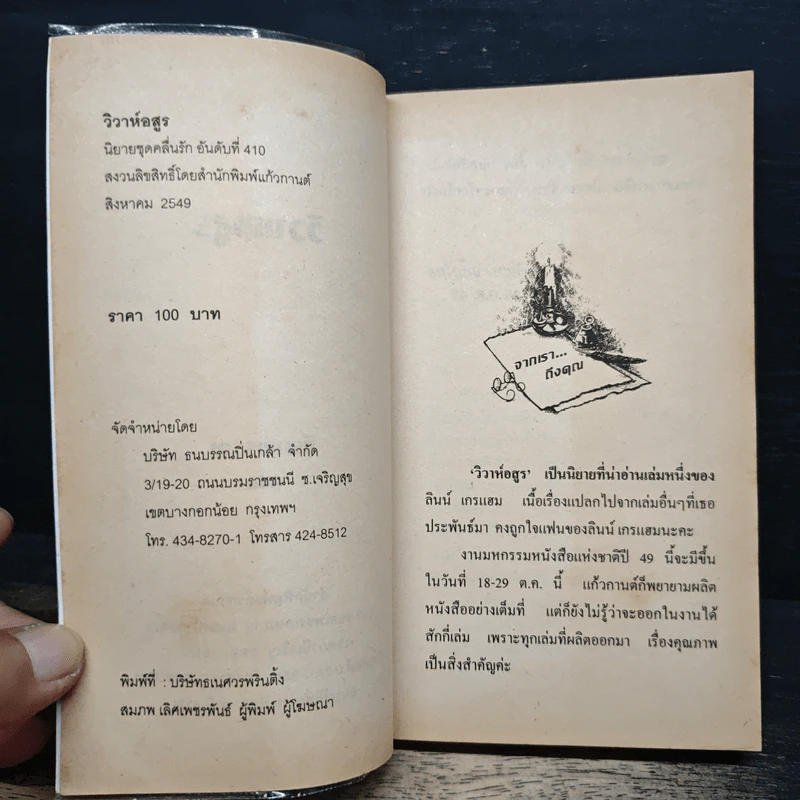 วิวาห์อสูร
นิยายชุดคลื่นรัก อันดับที่ 410
สงวนลิขสิทธิ์โดยสำนักพิมพ์แก้วกานต์
สิงหาคม 2549
ราคา 100 บาท
จัดจำหน่ายโดย
บริษัท ธนบรรณปิ่นเกล้า จำกัด
3/19-20 ถนนบรมราชชนนี ซ.เจริญสุข
เขตบางกอกน้อย กรุงเทพฯ
โทร. 434-8270-1 โทรสาร 424-8512
พิมพ์ที่ : บริษัทธเนศวรพรินติ้ง
สมภพ เลิศเพชรพันธ์ ผู้พิมพ์ ผู้โฆษณา
จากเรา...
ถึงคุณ
'วิวาห์อสูร' เป็นนิยายที่น่าอ่านเล่มหนึ่งของ
ลินน์ เกรแฮม เนื้อเรื่องแปลกไปจากเล่มอื่นๆที่เธอ
ประพันธ์มา คงถูกใจแฟนของลินน์ เกรแฮมนะคะ
งานมหกรรมหนังสือแห่งชาติปี 49 นี้จะมีขึ้น
ในวันที่ 18-29 ต.ค. นี้ แก้วกานต์ก็พยายามผลิต
หนังสืออย่างเต็มที่ แต่ก็ยังไม่รู้ว่าจะออกในงานได้
สักกี่เล่ม เพราะทุกเล่มที่ผลิตออกมา เรื่องคุณภาพ
เป็นสิ่งสำคัญค่ะ